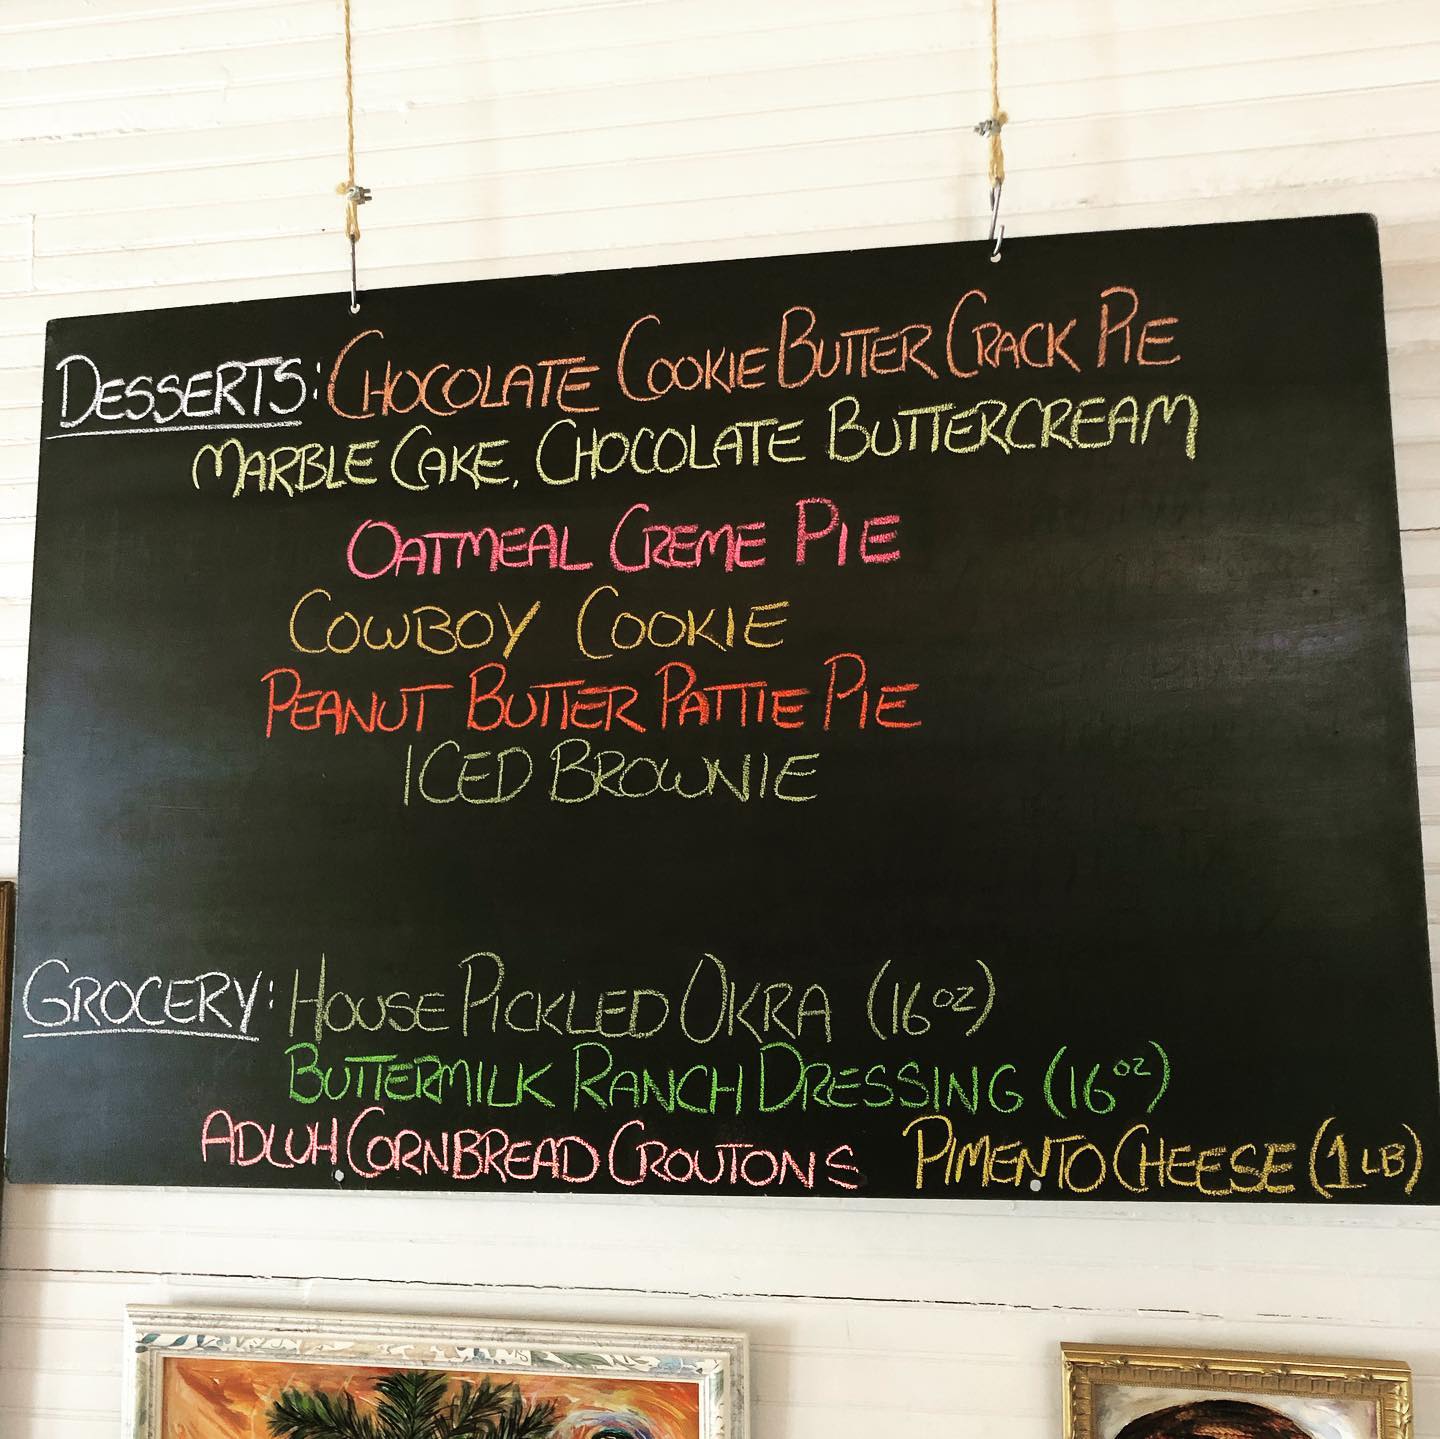 DESSERTS: CHOCOLATE COOKIE BUTTER CRACK PIE
MARBLE CAKE, CHOCOLATE BUTTERCREAM
OATMEAL CREME PIE
COWBOY COOKIE
PEANUT BUTTER PATTIE PIE
ICED BROWNIE
GROCERY: HOUSE PICKLED OKRA (16 OZ)
BUTTERMILK RANCH DRESSING (16 OZ)
ADLUH CORNBREAD CROUTONS PIMENTO CHEESE (1 LB)